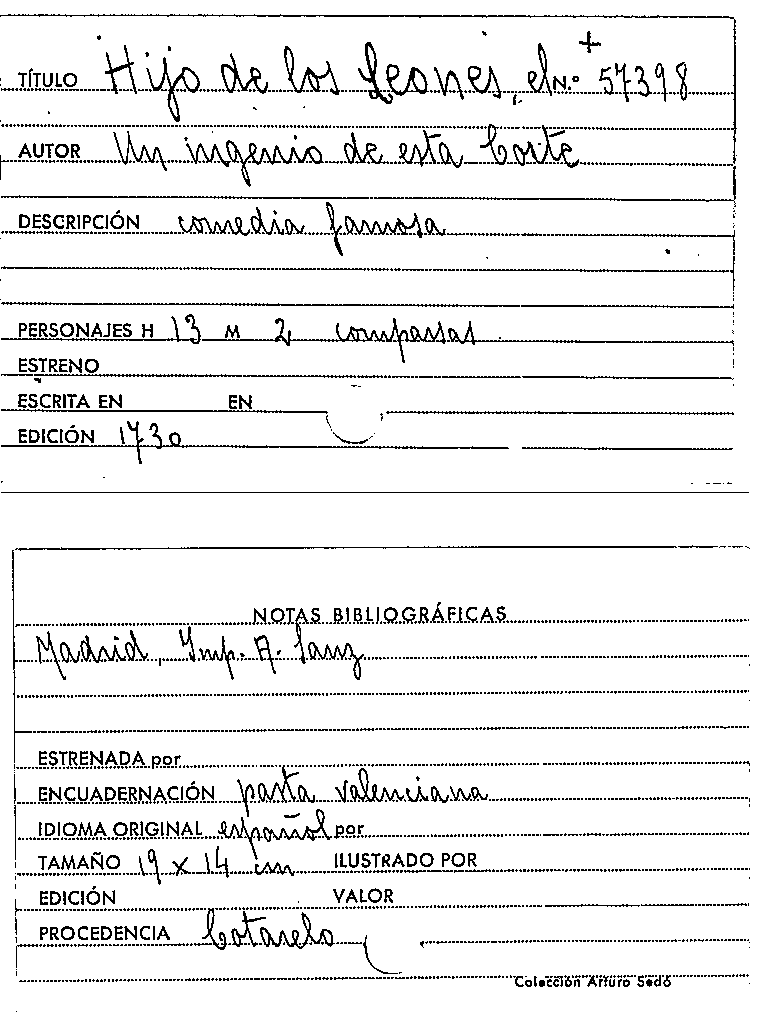 +
TÍTULO Hijo de los Leones, el N.º 57398
AUTOR Un ingenio de esta Corte
DESCRIPCIÓN comedia famosa
PERSONAJES H 13 M 2 comparsas
ESTRENO
ESCRITA EN EN
EDICIÓN 1730
NOTAS BIBLIOGRÁFICAS
Madrid, Imp. A. Sanz
ESTRENADA por
ENCUADERNACIÓN pasta valenciana
IDIOMA ORIGINAL español por
TAMAÑO 19 x 14 cm ILUSTRADO POR
EDICIÓN VALOR
PROCEDENCIA Cotarelo
Colección Arturo Sedó